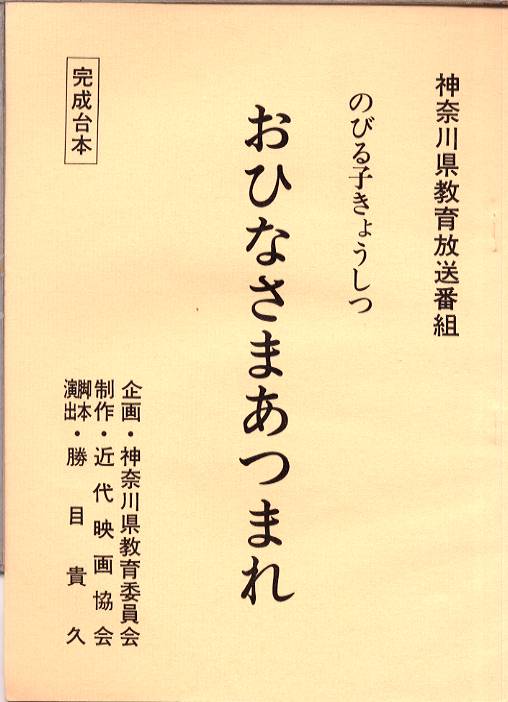 神奈川県教育放送番組
のびる子きょうしつ
おひなさまあつまれ
完成台本
企画・神奈川県教育委員会
制作・近代映画協会
脚本
演出・勝目貴久